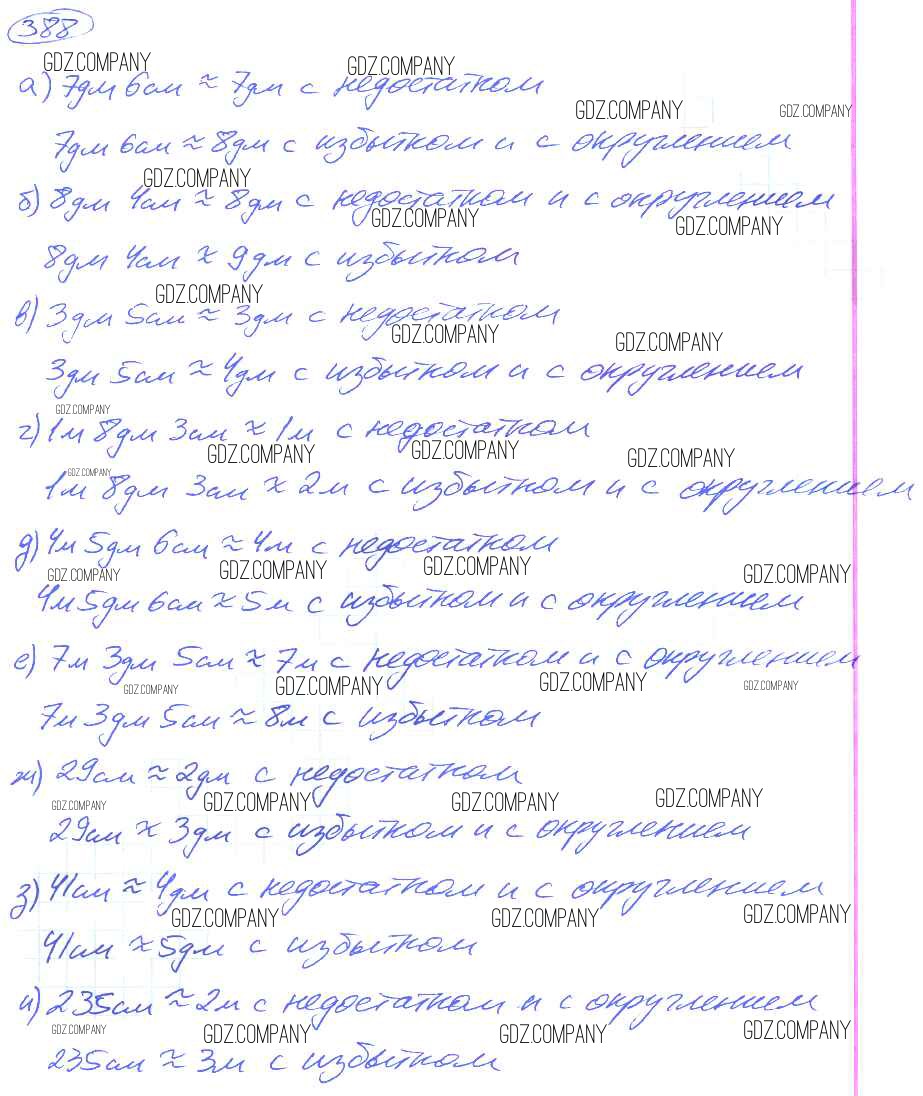 388
GDZ.COMPANY GDZ.COMPANY
а) 7дм 6см ≈ 7дм с недостатком
GDZ.COMPANY GDZ.COMPANY
7дм 6см ≈ 8дм с избытком и с округлением
GDZ.COMPANY
б) 8дм 4см ≈ 8дм с недостатком и с округлением
GDZ.COMPANY GDZ.COMPANY
8дм 4см ≈ 9дм с избытком
GDZ.COMPANY
в) 3дм 5см ≈ 3дм с недостатком
GDZ.COMPANY GDZ.COMPANY
3дм 5см ≈ 4дм с избытком и с округлением
GDZ.COMPANY
г) 1м 8дм 3см ≈ 1м с недостатком
GDZ.COMPANY GDZ.COMPANY GDZ.COMPANY
GDZ.COMPANY
1м 8дм 3см ≈ 2м с избытком и с округлением
д) 4м 5дм 6см ≈ 4м с недостатком
GDZ.COMPANY GDZ.COMPANY GDZ.COMPANY GDZ.COMPANY
4м 5дм 6см ≈ 5м с избытком и с округлением
е) 7м 3дм 5см ≈ 7м с недостатком и с округлением
GDZ.COMPANY GDZ.COMPANY GDZ.COMPANY GDZ.COMPANY
7м 3дм 5см ≈ 8м с избытком
ж) 29см ≈ 2дм с недостатком
GDZ.COMPANY GDZ.COMPANY GDZ.COMPANY GDZ.COMPANY
29см ≈ 3дм с избытком и с округлением
з) 41см ≈ 4дм с недостатком и с округлением
GDZ.COMPANY GDZ.COMPANY GDZ.COMPANY
41см ≈ 5дм с избытком
и) 235см ≈ 2м с недостатком и с округлением
GDZ.COMPANY GDZ.COMPANY GDZ.COMPANY GDZ.COMPANY
235см ≈ 3м с избытком